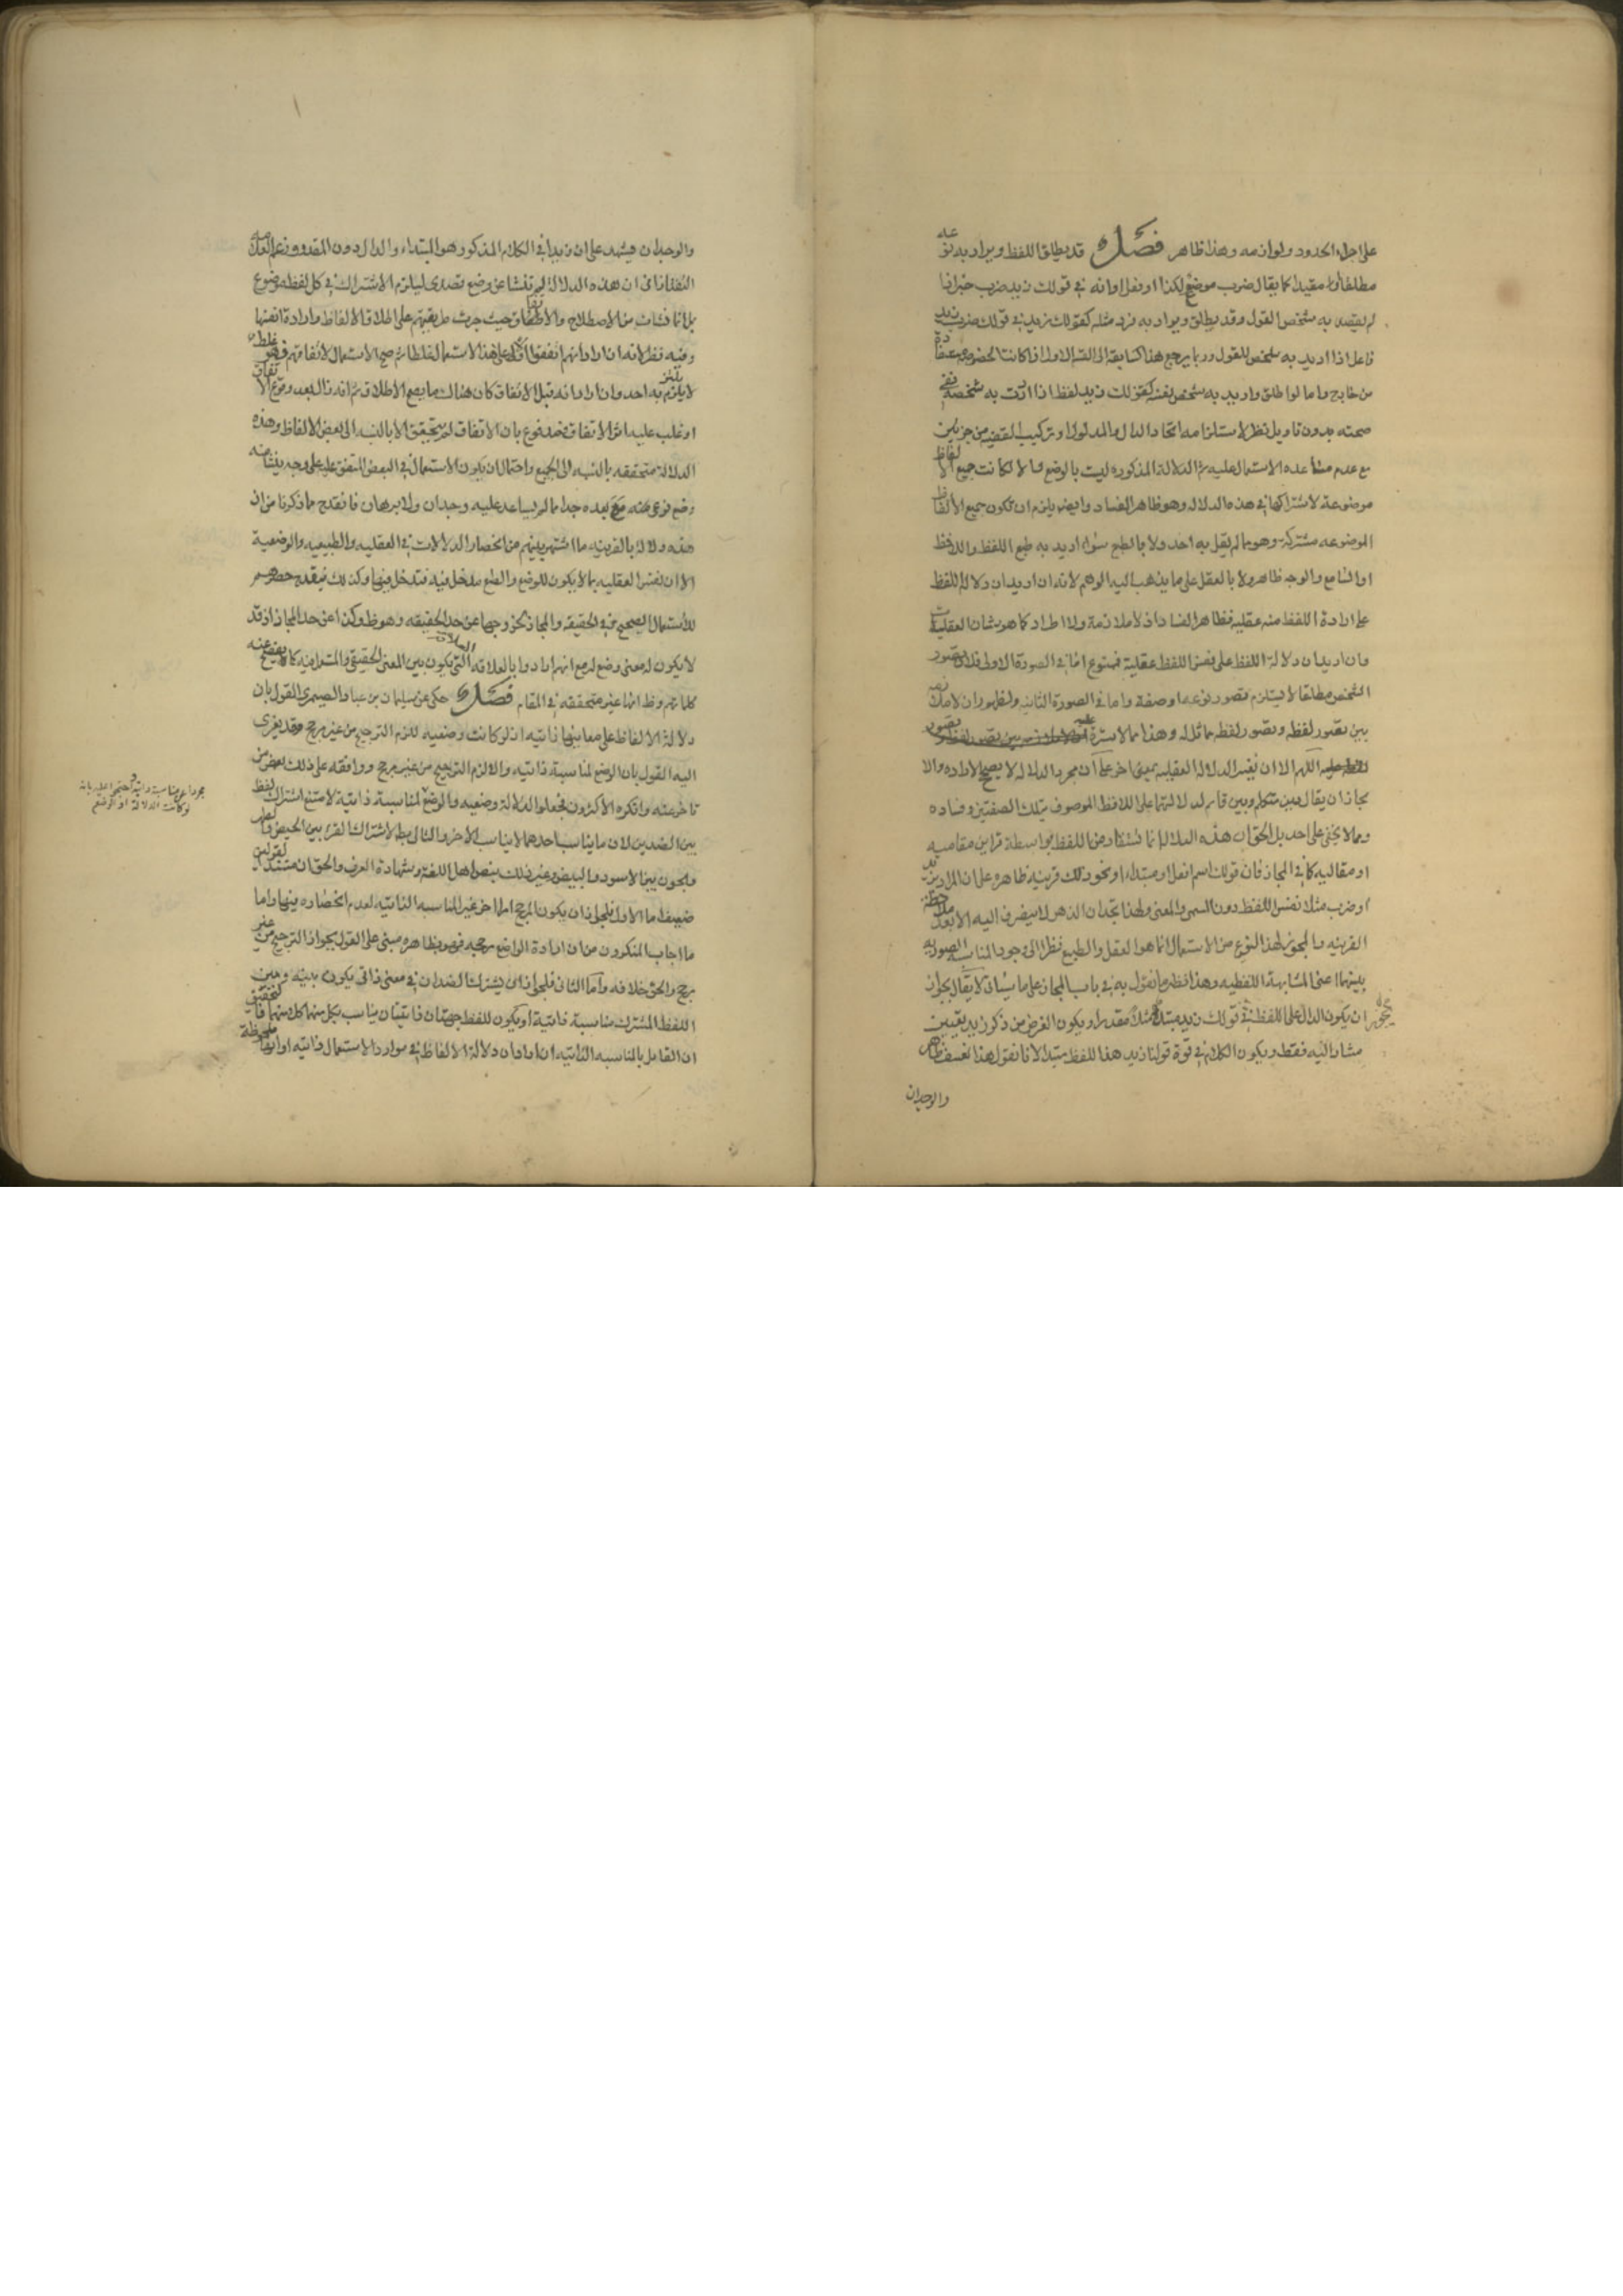 على اجزاء الحدود ولوازمه وهذا ظاهر فصل قد يطلق اللفظ ويراد به نوعه
مطلقا او مقيدا كما يقال ضرب موضوع لكذا او فعل او انه في قولك زيد ضرب خبر اذا
لم يقصد به شخص القول وقد يطلق ويراد به فرد مثله كقولك زيد في قولك ضرب زيد
فاعل اذا اريد به شخص القول وربما يرجع هذا كسابقه الى القسم الاول اذا كانت الخصوصية مستفادة
من خارج واما لو اطلق واريد به شخص نفسه كقولك زيد لفظ اذا اردت به شخصه ففي
صحته بدون تاويل نظر لاستلزامه اتحاد الدال والمدلول او تركيب القضية من جزئين
مع عدم مساعدة الاستعمال عليه ثم الدلالة المذكورة ليست بالوضع والا لكانت جميع الالفاظ
موضوعة لاشتراكها في هذه الدلالة وهو ظاهر الفساد وايضا يلزم ان يكون جميع الالفاظ
الموضوعه مشتركة وهو مما لم يقل به احد ولا بالطبع سواء اريد به طبع اللفظ واللافظ
او السامع والوجه ظاهر ولا بالعقل على ما يذهب اليه الوهم لانه ان اريد ان دلالة اللفظ
على ارادة اللفظ منه عقلية فظاهر الفساد اذ لا ملازمة ولا اطراد كما هو شان العقليات
وان اريد ان دلالة اللفظ على نفس اللفظ عقلية فممنوع اما في الصورة الاولى فلان تصور
الشخص مطلقا لا يستلزم تصور نوعه او صفة واما في الصورة الثانية ولظهور ان لا ملازمة
بين تصور لفظ وتصور لفظ مماثل له وهذا مما لا سترة عليه
اللهم الا ان يفسر الدلالة العقلية بمعنى اخر على ان مجرد الدلالة لا يصحح الارادة والا
لجاز ان يقال دين متكلم وبين قائم لدلالتهما على اللافظ الموصوف بتلك الصفتين وفساده
مما لا يخفى على احد بل الحق ان هذه الدلالة انما تستفاد من اللفظ بواسطة قراين مقامية
او مقالية كما في المجاز فان قولك اسم او فعل او مبتداء او نحو ذلك قرينة ظاهرة على ان المراد بزيد
او ضرب مثلا نفس اللفظ دون المسمى والمعنى ولهذا تجد ان الذهن لا ينصرف اليه الا بعد ملاحظة
القرينه والمجوز لهذا النوع من الاستعمال انما هو العقل والطبع نظرا الى وجود المناسبة الصورية
بينهما اعنى المشابهة اللفظيه وهذا نظير ما نقول به في باب المجاز على ما سيأتى لا يقال يجوز
ان يكون الدال على اللفظ في قولك زيد مبتدا مثلا مقدرا ويكون الغرض من ذكر زيد تعيين
مشار اليه فقط ويكون الكلام في قوة قولنا زيد هذا اللفظ مبتدا لانا نقول هذا تعسف ظاهر
والوجدان
والوجدان يشهد على ان زيدا في الكلام المذكور هو المبتداء والدال دون المقدر وزعم العلامة
التفتازاني ان هذه الدلالة لم تنشا عن وضع قصدى ليلزم الاشتراك في كل لفظ موضوع
بل انما نشات من الاصطلاح والاتفاق حيث جرت طريقتهم على اطلاق الالفاظ وارادة انفسها
وفيه نظر لانه ان اراد انهم اتفقوا اولا على هذا الاستعمال غلطا ثم صح الاستعمال لاتفاقهم فهو غلط
لا يلتزم به احد وان اراد انه قبل الاتفاق كان هناك ما يصح الاطلاق ثم انه زال بعد وقوع الاتفاق
او غلب عليه اثر الاتفاق فمدفوع بان الاتفاق لم يتحقق الا بالنسبة الى بعض الالفاظ وهذه
الدلالة متحققه بالنسبه الى الجميع واحتمال ان يكون الاستعمال في البعض المتفق عليه على وجه ينشا منه
وضع نوعى مع بعده جدا مما لم يساعد عليه وجدان ولا برهان فانقدح مما ذكرنا من ان
هذه دلالة بالقرينه ما اشتهر بينهم من انحصار الدلالات في العقليه والطبيعيه والوضعية
الا ان يفسر العقليه بما لا يكون للوضع والطبع مدخل فيه فتدخل فيها وكذلك ينقدح حصرهم
للاستعمال الصحيح في الحقيقه والمجاز لخروجها عن حد الحقيقه وهو ظ وكذا عن حد المجاز اذ قد
لا يكون له معنى وضع له مع انهم ارادوا بالعلاقة العلاقات التى يكون بين المعنى الحقيقى والمستعمل فيه كما يفصح عنه
كلماتهم وظ انها غير متحققه في المقام فصل حكى عن سليمان بن عباد الصيمرى القول بان
دلالة الالفاظ على معانيها ذاتيه اذ لو كانت وضعيه للزم الترجيح من غير مرجح وقد يعزى
اليه القول بان الوضع لمناسبة ذاتيه والا لزم الترجيح من غير مرجح ووافقه على ذلك بعض من
تاخر عنه وانكره الاكثرون فجعلوا الدلالة وضعيه والوضع لا لمناسبة ذاتية لامتنع اشتراك لفظ
بين الضدين لان ما يناسب احدهما لا يناسب الاخر والتالى بط لاشتراك القرء بين الحيض والطهر
والجون بين الاسود والابيض وغير ذلك بنص اهل اللغة وشهادة العرف والحق ان مستند القولين
ضعيف اما الاول فلجواز ان يكون المرجح امرا اخر غير المناسبه الذاتيه لعدم انحصاره فيها واما
ما اجاب المنكرون من ان ارادة الواضع مرجحه فهو بظاهره مبنى على القول بجواز الترجيح من غير
مرجح والحق خلافه واما الثانى فلجواز ان يشترك الضدان في معنى ذاتى يكون بينه وبين
اللفظ المشترك مناسبة ذاتية او يكون للفظ جهتان ذاتيتان يناسب بكل منهما كلا منهما فالتحقيق
ان القايل بالمناسبه الذاتيه ان اراد ان دلالة الالفاظ في موارد الاستعمال ذاتيه او انها ملحوظة
مجردا عن مناسبة ذاتية واحتجوا عليه بانه
لو كانت الدلالة او الوضع